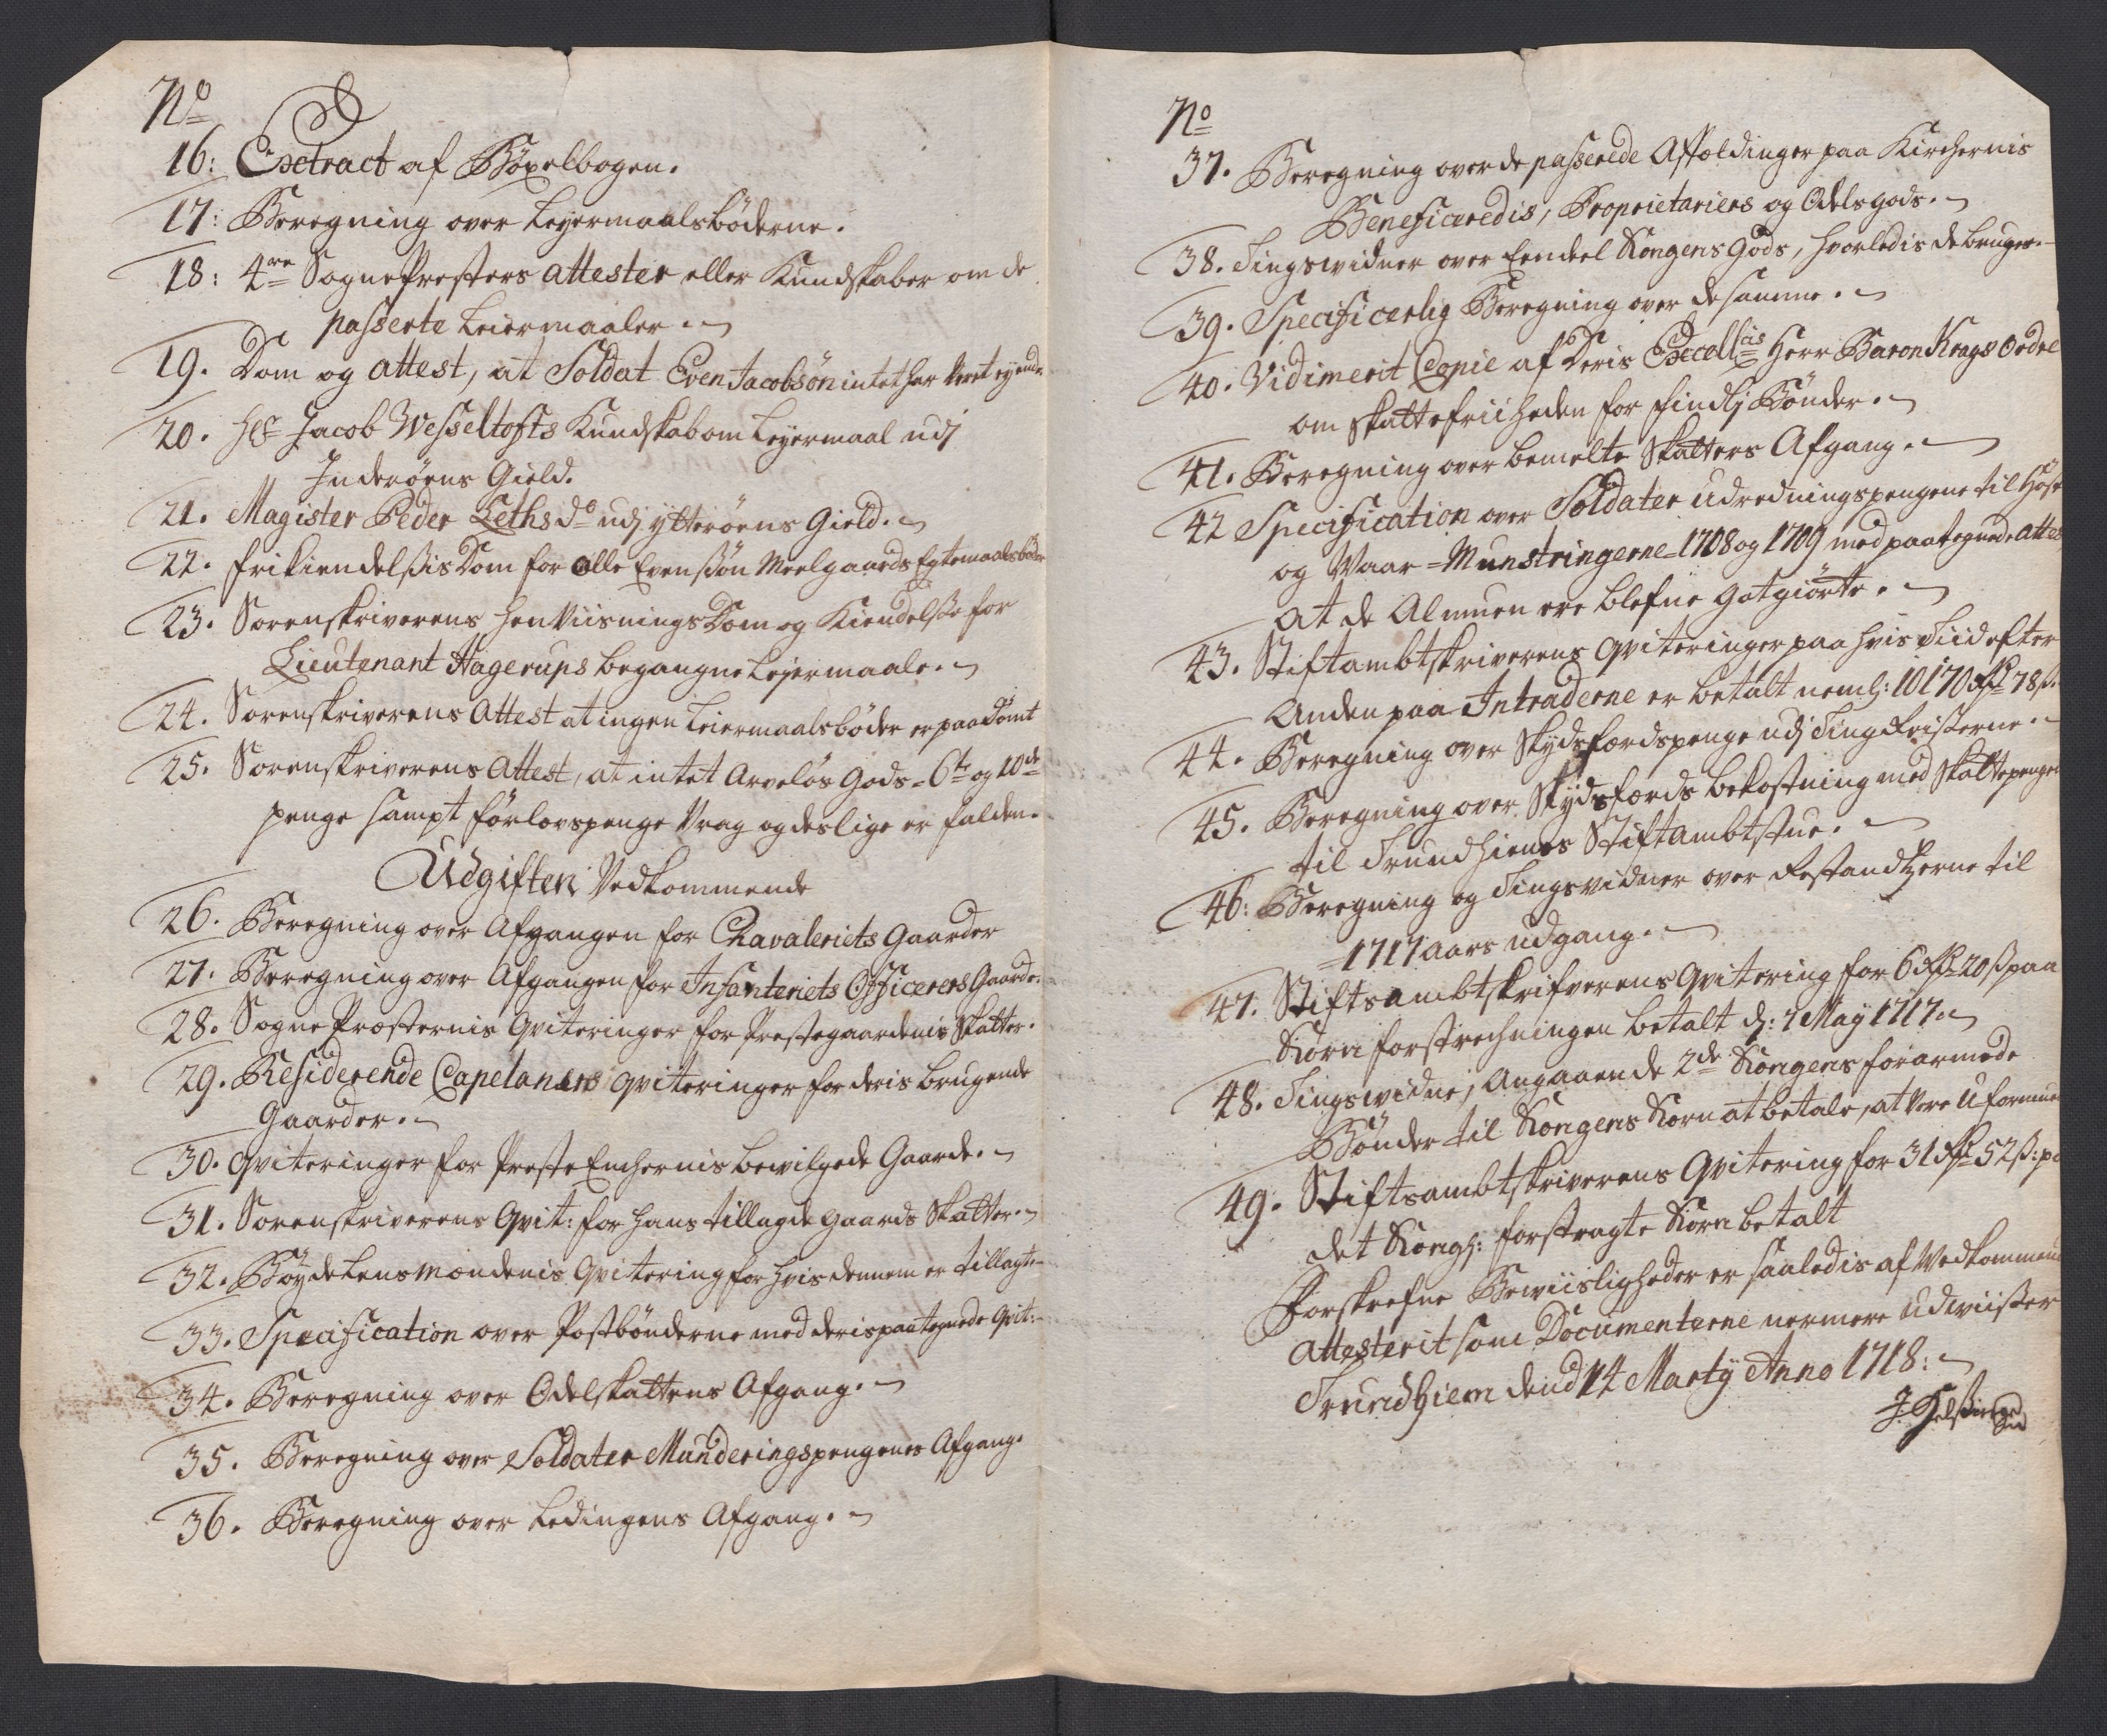 No
16: Extract af Böxelbogen.
17: Beregning over Leyermaalsböderne.
18: 4re SognePresters attester eller Kundskaber om de
passerte Leiermaaler.
19. Dom og attest, at Soldat Even Jacobsön intet har veret eyende
20. Hr Jacob Wesseltofts Kundskab om Leyermaal udj
Inderöens Gield.
21. Magister Peder Leths do udj ytteröens Gield.
22. frikiendelssis Dom for Olle Evenssön Meelgaards Egtemaalsböder
23. Sorenskriverens henviisnings Dom og Kiendelsse for
Lieutenant Hagerups begangne Leyermaale.
24. Sorenskriverens Attest at ingen Leiermaalsböder er paadömt
25. Sorenskriverens Attest, at intet Arvelös Gods - 6te og 10de
penge sampt förlovspenge Vrag og deslige er falden.
Udgiften Vedkommende
26. Beregning over Afgangen for Chavaleriets Gaarder
27. Beregning over Afgangen for Infanteriets Officerers Gaarde.
28. Sogne Præsternis Qviteringer for Prestegaardenis Skatter.
29. Residerende Capelaners qviteringer for deris brugende
Gaarder.
30. qviteringer for Preste Enchernis bevilgede Gaarde.
31. Sorenskriverens Qvit: for hans tillagde gaards Skatter.
32. Böyde Lensmændenis Qvitering for hvis dennem er tillagt.
33. Specification over Postbönderne med deris paategnede qvit:
34. Beregning over Odelskattens Afgang.
35. Beregning over Soldater Munderingspengenes Afgang.
36. Beregning over Ledingens Afgang.
No
37. Beregning over de passerede Affældinger paa Kirchernis
Beneficeredis, Proprietariers og Odelsgods.
38. Tingsvidner over Eendeel Kongens Gods, hvorledis de bruges.
39. Specificerlig Beregning over de samme.
40. Vidimerit Copie af Deris Excellcis Herr Baron Krags Ordre
om skattefriiheden for findlj Bönder.
41. Beregning over bemelte Skatters Afgang.
42 Specification over Soldater udredningspengene til Höst
og Vaar-Munstringerne 1708 og 1709 med paategnede attes
at de Almuen ere blefne gotgiörte.
43. Stiftambtskriverens qviteringer paa hvis Tiid efter
Anden paa Intraderne er betalt neml: 10170 Rdr 78 ss.
44. Beregning over Skydsfærdspenge udj Tingreiserne.
45. Beregning over Skydsferds bekostning med Skattepengen
til Trundhiems Stiftambtstue.
46: Beregning og Tingsvidner over Restandtzerne til
1717 aars udgang.
47. Stiftsambtskrifverens Qvitering for 6 Rdr 20 ss paa
Korn forstrechningen betalt d: 7 May 1717.
48. Tingsvidne, Angaaende 2de Kongens forarmede
Bönder til Kongens Korn at betale, at vere uformue
49. Stiftsambtskriverens Qvitering for 31 Rdr 52 ss: pa
det Kongl: forstragte Korn betalt
Forskrefne Beviisligheder er saaledis af Vedkommend
attesterit som Documenterne nermere udviisser
Trundhiem dend 14 Marty Anno 1718: